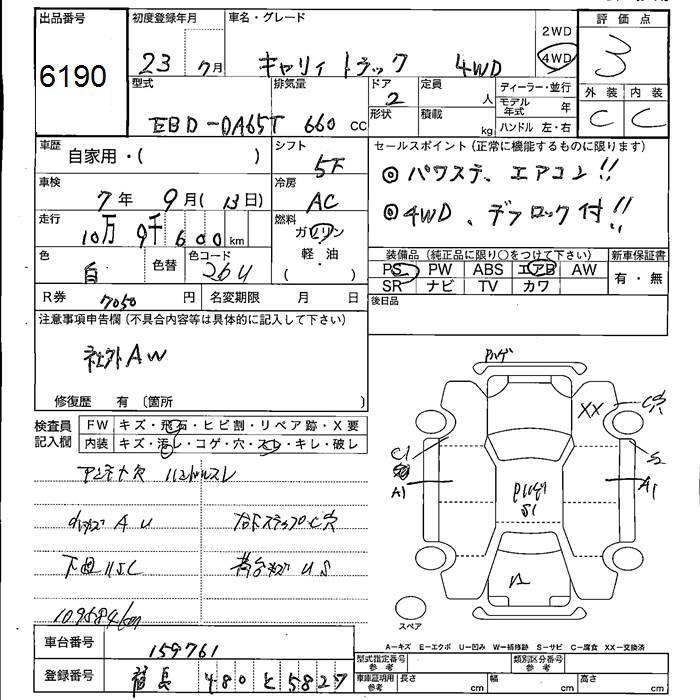 出品番号
6190
初度登録年月
23 7月
車名・グレード
キャリィ トラック 4WD
2WD
4WD
評価点
3
型式
EBD-DA65T
排気量
660 cc
ドア
2
形状
定員
人
積載
kg
ディーラー・並行
モデル年式 年
ハンドル 左・右
外装
C
内装
C
車歴
自家用・( )
シフト
5F
車検
7年 9月(13日)
冷房
AC
走行
10万 9千 600 km
燃料
ガソリン
軽・油
( )
色
白
色替
色コード
26U
R券
7050 円
名変期限 月 日
セールスポイント(正常に機能するものに限ります)
◎パワステ、エアコン!!
◎4WD、デフロック付!!
装備品(純正品に限り○をつけて下さい)
PS PW ABS エアB AW
SR ナビ TV カワ
新車保証書
有・無
後日品
注意事項申告欄(不具合内容等は具体的に記入して下さい)
社外AW
修復歴 有(箇所 )
検査員記入欄
FW キズ・飛石・ヒビ割・リペア跡・X要
内装 キズ・汚レ・コゲ・穴・スレ・キレ・破レ
アンテナ穴 ハンドルスレ
A U
C穴
下回りSC
荷台キズ U S
109584km
XX
C穴
S
A1
C1
A1
S1
スペア
A-キズ E-エクボ U-凹み W-補修跡 S-サビ C-腐食 XX-交換済
車台番号
159761
登録番号
480 と 5827
型式指定番号
参考
類別区分番号
参考
車庫証明用
参考
長さ cm
幅 cm
高さ cm